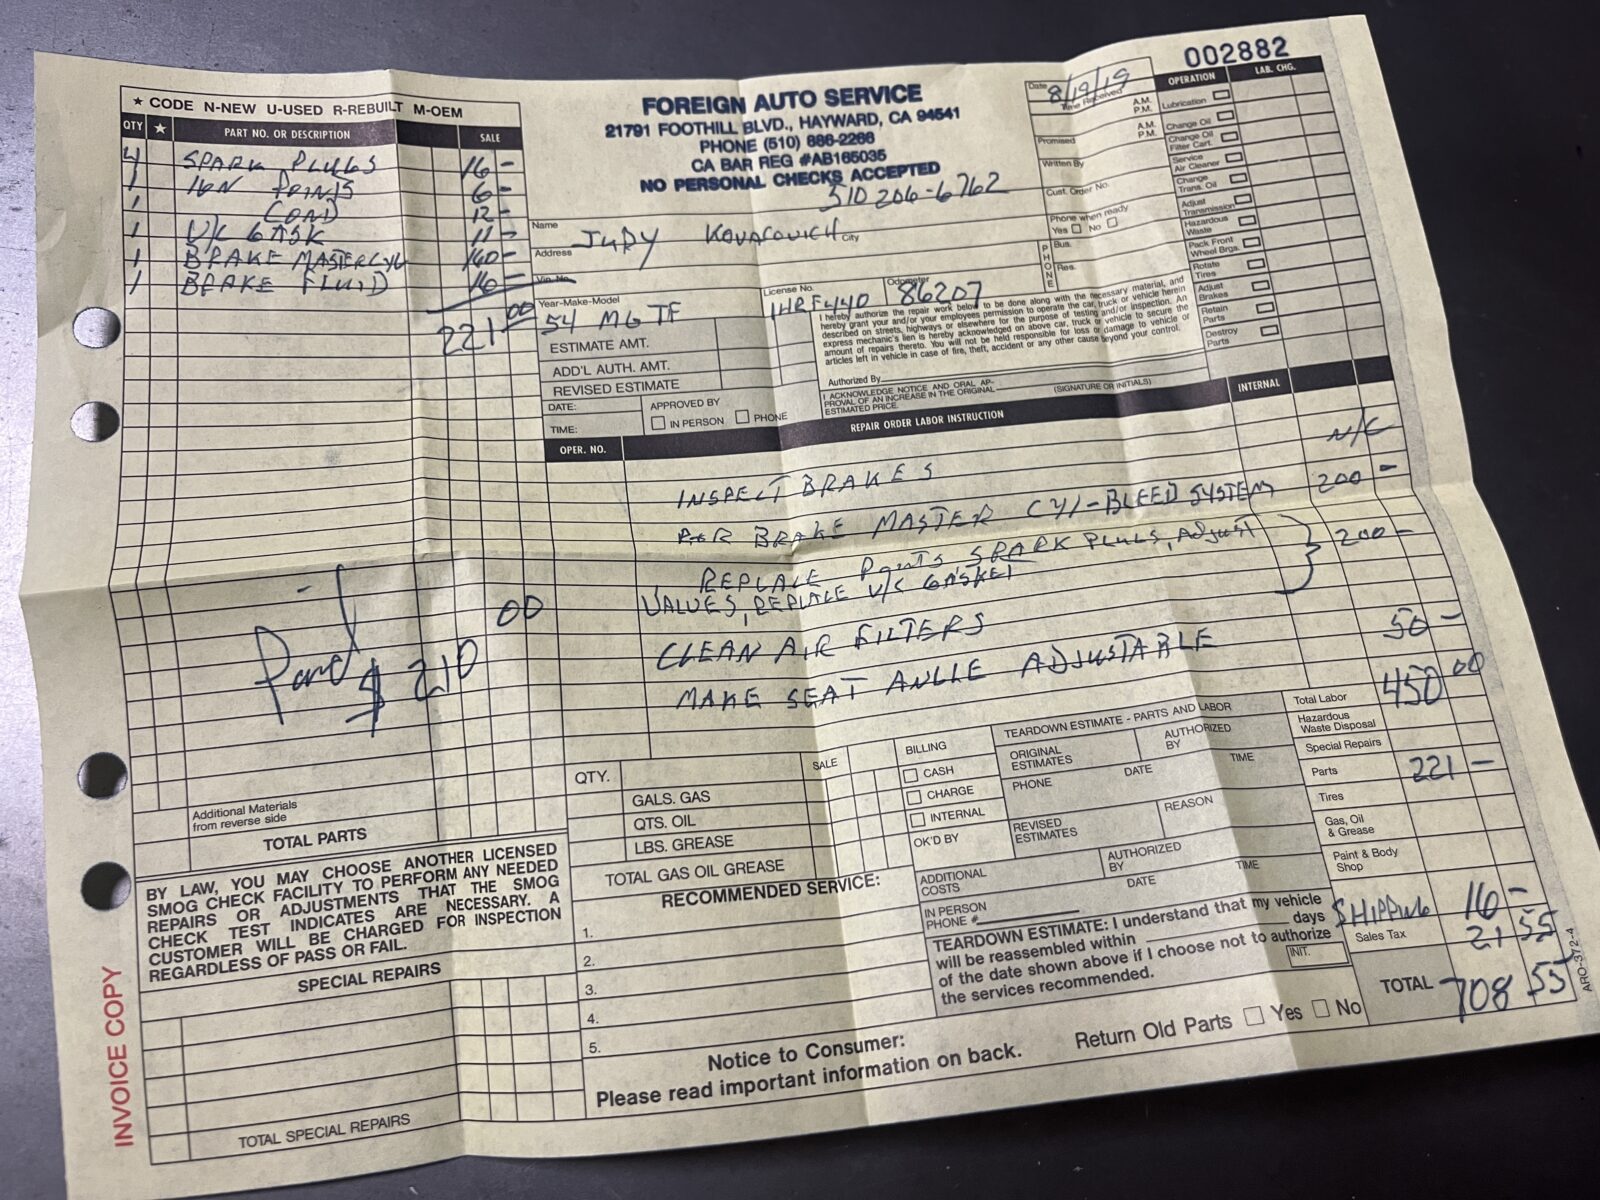 002882
★ CODE N-NEW U-USED R-REBUILT M-OEM
QTY ★ PART NO. OR DESCRIPTION SALE
4 SPARK PLUGS 16 -
1 IGN POINTS 6 -
1 COND 12 -
1 V/C GASK 11 -
1 BRAKE MASTER CYL 160 -
1 BRAKE FLUID 16 -
221 00
Paid
$ 210 00
Additional Materials
from reverse side
TOTAL PARTS
BY LAW, YOU MAY CHOOSE ANOTHER LICENSED
SMOG CHECK FACILITY TO PERFORM ANY NEEDED
REPAIRS OR ADJUSTMENTS THAT THE SMOG
CHECK TEST INDICATES ARE NECESSARY. A
CUSTOMER WILL BE CHARGED FOR INSPECTION
REGARDLESS OF PASS OR FAIL.
SPECIAL REPAIRS
TOTAL SPECIAL REPAIRS
INVOICE COPY
FOREIGN AUTO SERVICE
21791 FOOTHILL BLVD., HAYWARD, CA 94541
PHONE (510) 886-2266
CA BAR REG #AB165035
NO PERSONAL CHECKS ACCEPTED
510 206-6762
Name JUDY KOVACOVICH
Address City
Vin. No. License No. 1HRF440 Odometer 86207
Year-Make-Model 54 MG TF
ESTIMATE AMT.
ADD'L AUTH. AMT.
REVISED ESTIMATE
DATE: APPROVED BY
TIME: IN PERSON PHONE
Date 8/19/19
Time Received A.M. P.M.
Promised A.M. P.M.
Written By
Cust. Order No.
Phone when ready
Yes No
PHONE
Bus.
Res.
I hereby authorize the repair work below to be done along with the necessary material, and
hereby grant you and/or your employees permission to operate the car, truck or vehicle herein
described on streets, highways or elsewhere for the purpose of testing and/or inspection. An
express mechanic's lien is hereby acknowledged on above car, truck or vehicle to secure the
amount of repairs thereto. You will not be held responsible for loss or damage to vehicle or
articles left in vehicle in case of fire, theft, accident or any other cause beyond your control.
Authorized By
I ACKNOWLEDGE NOTICE AND ORAL AP-
PROVAL OF AN INCREASE IN THE ORIGINAL
ESTIMATED PRICE. (SIGNATURE OR INITIALS)
OPERATION LAB. CHG.
Lubrication
Change Oil
Change Oil
Filter Cart.
Service
Air Cleaner
Change
Trans. Oil
Adjust
Transmission
Hazardous
Waste
Pack Front
Wheel Brgs.
Rotate
Tires
Adjust
Brakes
Retain
Parts
Destroy
Parts
OPER. NO. REPAIR ORDER LABOR INSTRUCTION INTERNAL
INSPECT BRAKES N/C
R&R BRAKE MASTER CYL-BLEED SYSTEM 200 -
REPLACE Points SPARK PLUGS, Adjust
VALVES, REPLACE V/C GASKET } 200 -
CLEAN AIR FILTERS
MAKE SEAT ANGLE ADJUSTABLE 50 -
QTY. SALE
GALS. GAS
QTS. OIL
LBS. GREASE
TOTAL GAS OIL GREASE
RECOMMENDED SERVICE:
1.
2.
3.
4.
5.
BILLING
CASH
CHARGE
INTERNAL
OK'D BY
TEARDOWN ESTIMATE - PARTS AND LABOR
ORIGINAL
ESTIMATES
AUTHORIZED
BY
PHONE DATE TIME
REVISED
ESTIMATES
REASON
ADDITIONAL
COSTS
AUTHORIZED
BY
IN PERSON
PHONE # DATE TIME
TEARDOWN ESTIMATE: I understand that my vehicle
will be reassembled within days
of the date shown above if I choose not to authorize
the services recommended. INIT.
Total Labor 450 00
Hazardous
Waste Disposal
Special Repairs
Parts 221 -
Tires
Gas, Oil
& Grease
Paint & Body
Shop
SHIPPING 16 -
Sales Tax 21 55
TOTAL 708 55
Notice to Consumer:
Please read important information on back.
Return Old Parts Yes No
ARO-372-4